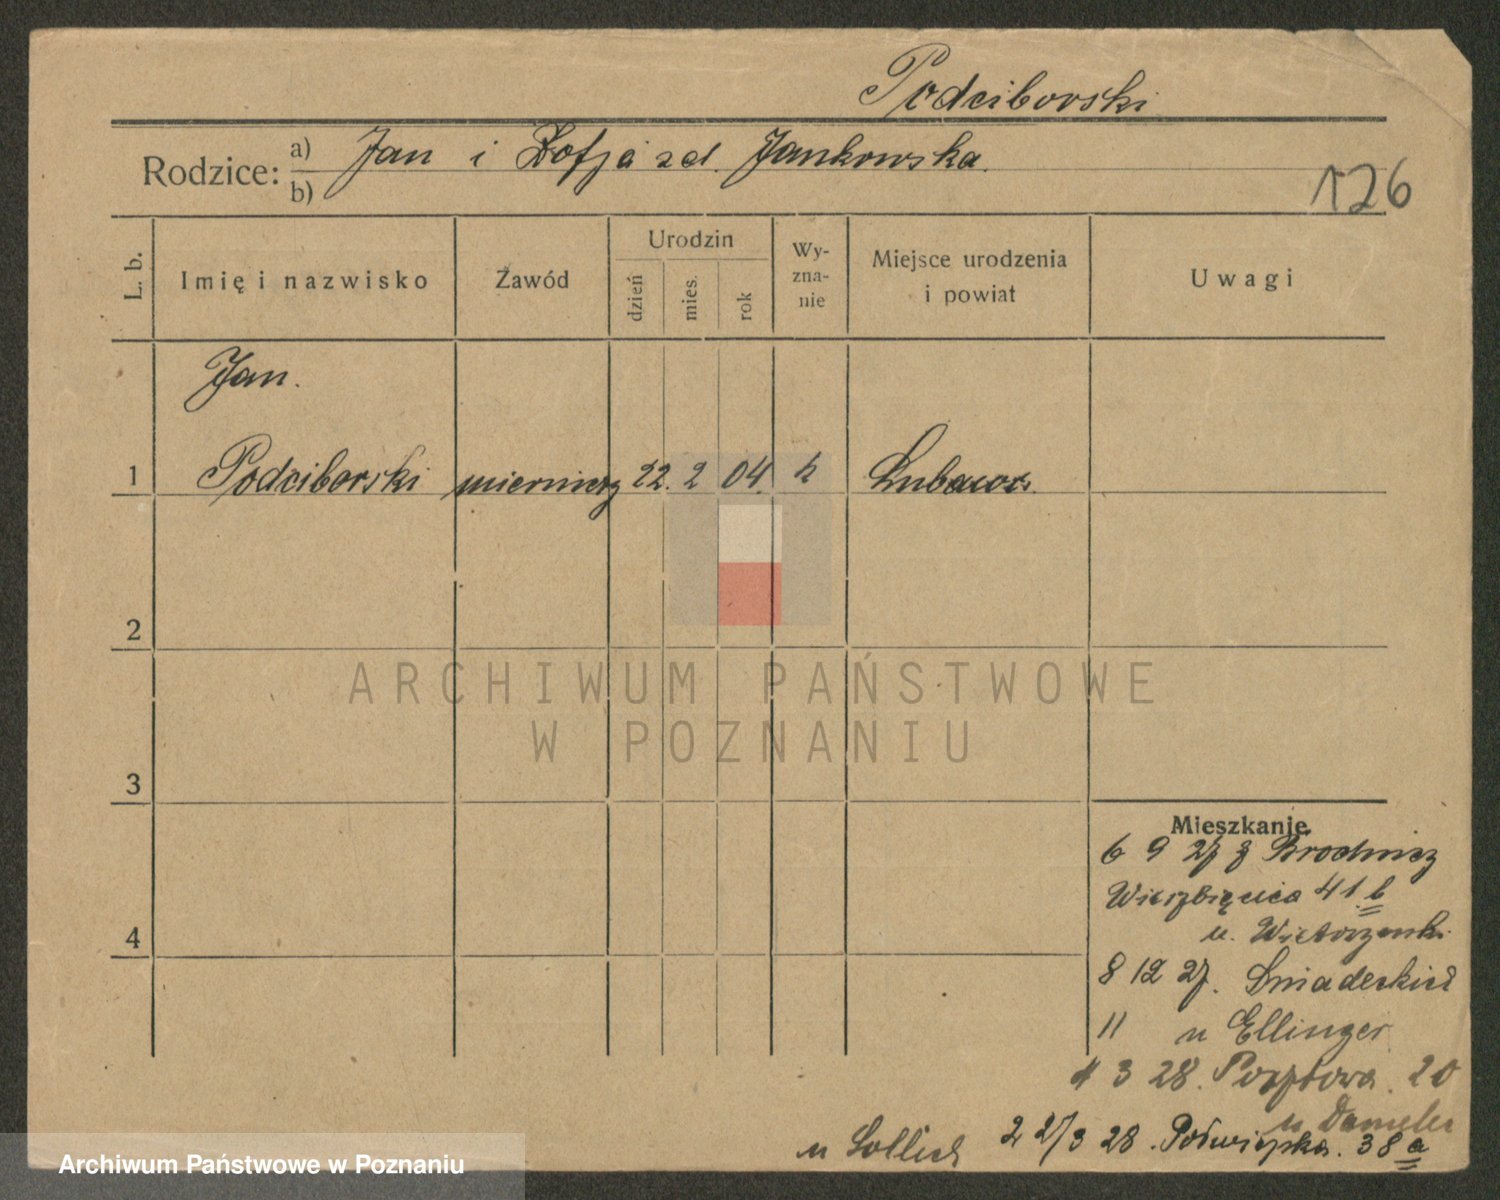 Podciborski
Rodzice: a) Jan i Zofja zd. Jankowska.
b)
126
L. b.
Imię i nazwisko
Zawód
Urodzin
dzień
mies.
rok
Wy-
zna-
nie
Miejsce urodzenia
i powiat
Uwagi
Jan.
1 Podciborski mierniczy 22. 2 04. k Lubawa.
2
3
4
ARCHIWUM PAŃSTWOWE
W POZNANIU
Mieszkanie
6 9 27 z Brodnicy
Wierzbięcice 41 b
u.
8 12 27. Śniadeckich
11 u Ellinger
4 3 28. Pocztowa. 20
u
u 27/3 28. Półwiejska. 38 a
Archiwum Państwowe w Poznaniu